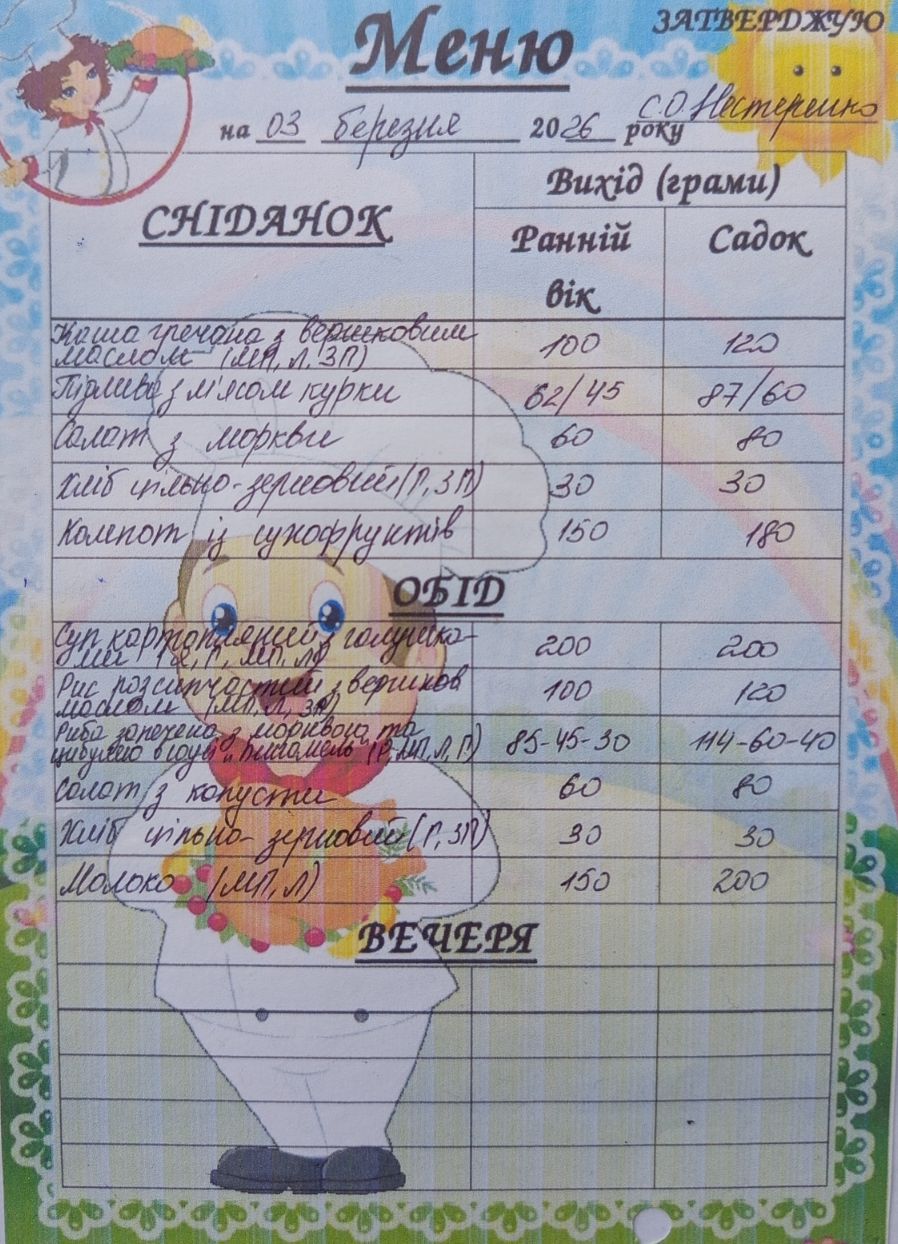 ЗАТВЕРДЖУЮ
Меню
С.О. Нестеренко
на 03 березня 2026 року
СНІДАНОК
Вихід (грами)
Ранній вік
Садок
Каша гречана з вершковим
маслом (МП, Л, ЗП) 100 120
Підлива з м'ясом курки 62/45 87/60
Салат з моркви 60 80
Хліб цільно-зерновий (Г, ЗП) 30 30
Компот із сухофруктів 150 180
ОБІД
Суп картопляний з галушка-
ми (Я, Г, МП, Л) 200 200
Рис розсипчастий з вершков
маслом (МП, Л, ЗП) 100 120
Риба запечена з морквою та
цибулею (Р, МП, Л, Г) 85-45-30 114-60-40
Салат з капусти 60 80
Хліб цільно-зерновий (Г, ЗП) 30 30
Молоко (МП, Л) 150 200
ВЕЧЕРЯ